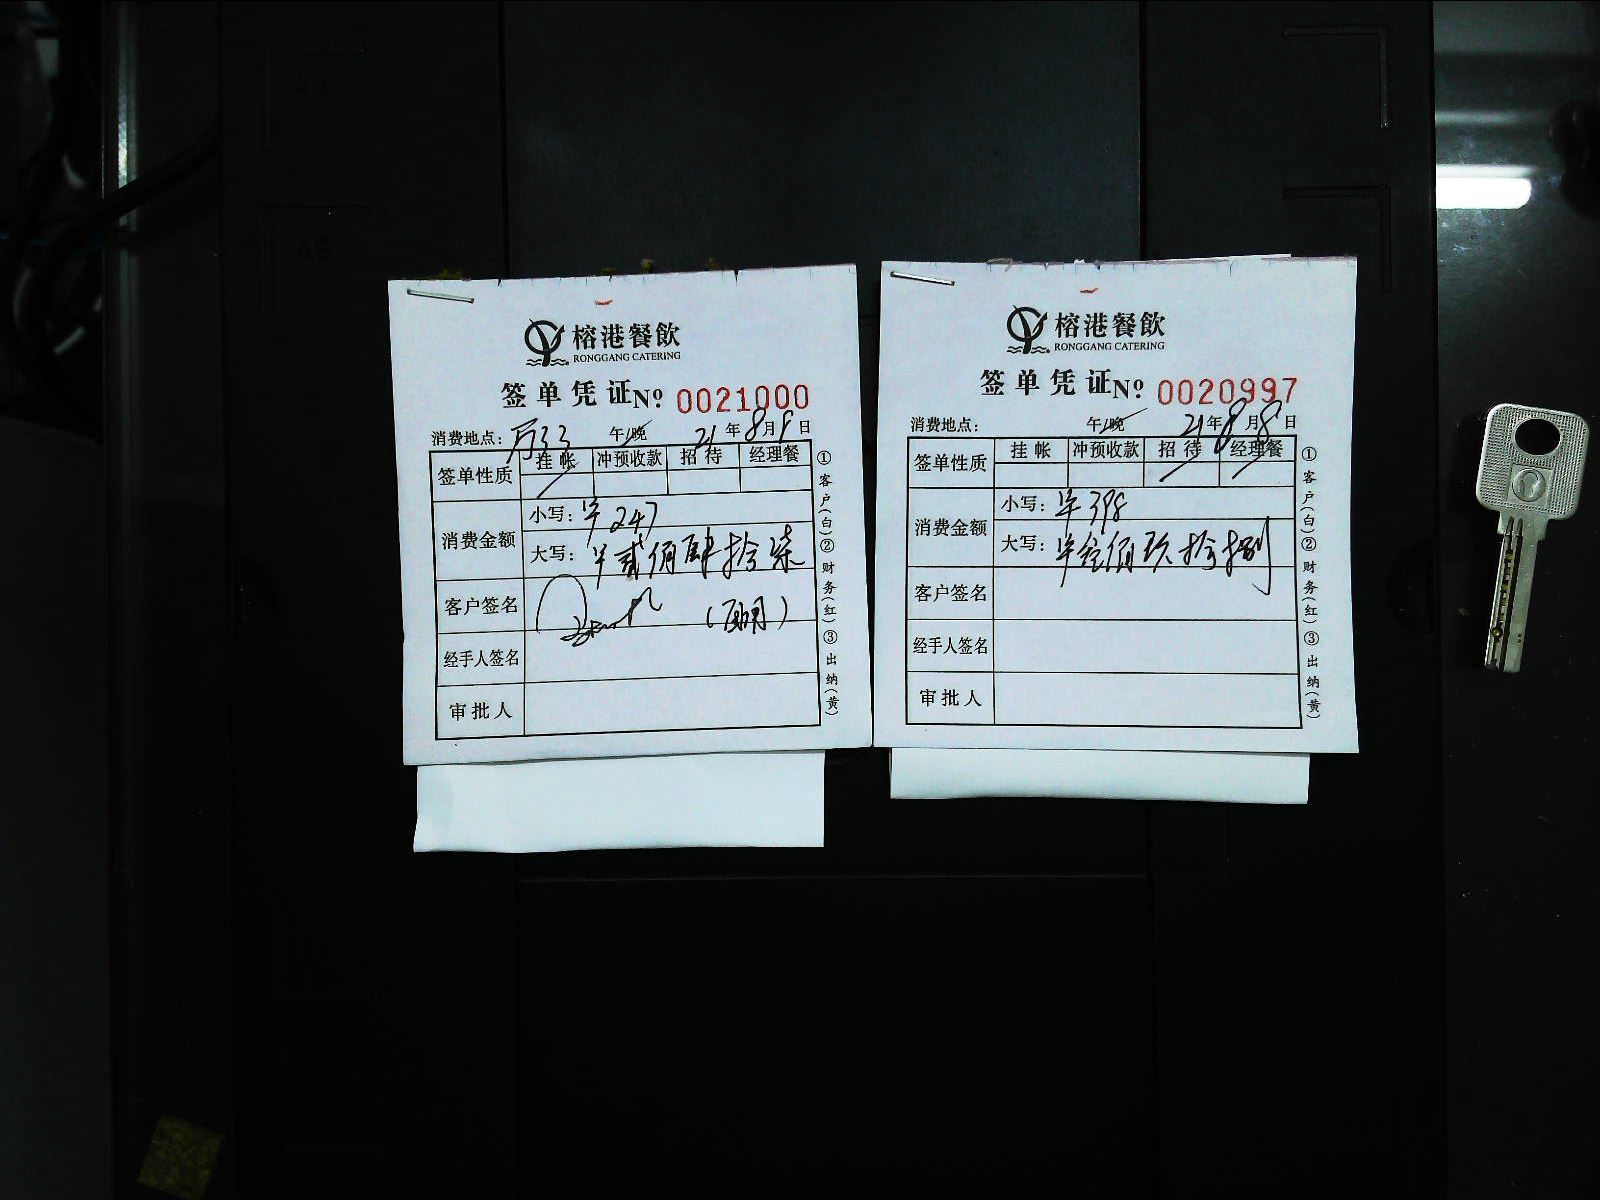 榕港餐飲
RONGGANG CATERING
签单凭证 No 0021000
消费地点: 房33 午/晚 21年8月9日
签单性质 挂帐 冲预收款 招待 经理餐
消费金额
小写: 247
大写: 贰佰肆拾柒
客户签名
经手人签名
审批人
①客户(白)②财务(红)③出纳(黄)
榕港餐飲
RONGGANG CATERING
签单凭证 No 0020997
消费地点: 午/晚 21年8月8日
签单性质 挂帐 冲预收款 招待 经理餐
消费金额
小写: 398
大写: 叁佰玖拾捌
客户签名
经手人签名
审批人
①客户(白)②财务(红)③出纳(黄)
A5